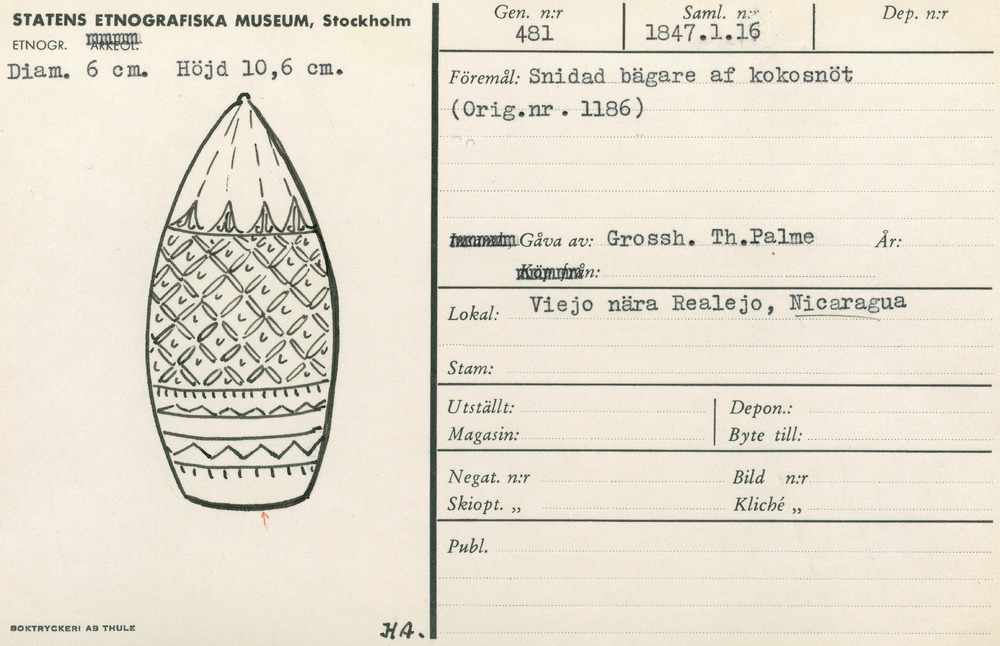 STATENS ETNOGRAFISKA MUSEUM, Stockholm
ETNOGR. ARKEOL.
Diam. 6 cm. Höjd 10,6 cm.
BOKTRYCKERI AB THULE
HA.
Gen. n:r
481
Saml. n:r
1847.1.16
Dep. n:r
Föremål: Snidad bägare af kokosnöt
(Orig.nr. 1186)
Gåva av: Grossh. Th.Palme År:
Köp från:
Lokal: Viejo nära Realejo, Nicaragua
Stam:
Utställt: Depon.:
Magasin: Byte till:
Negat. n:r Bild n:r
Skiopt. „ Kliché „
Publ.